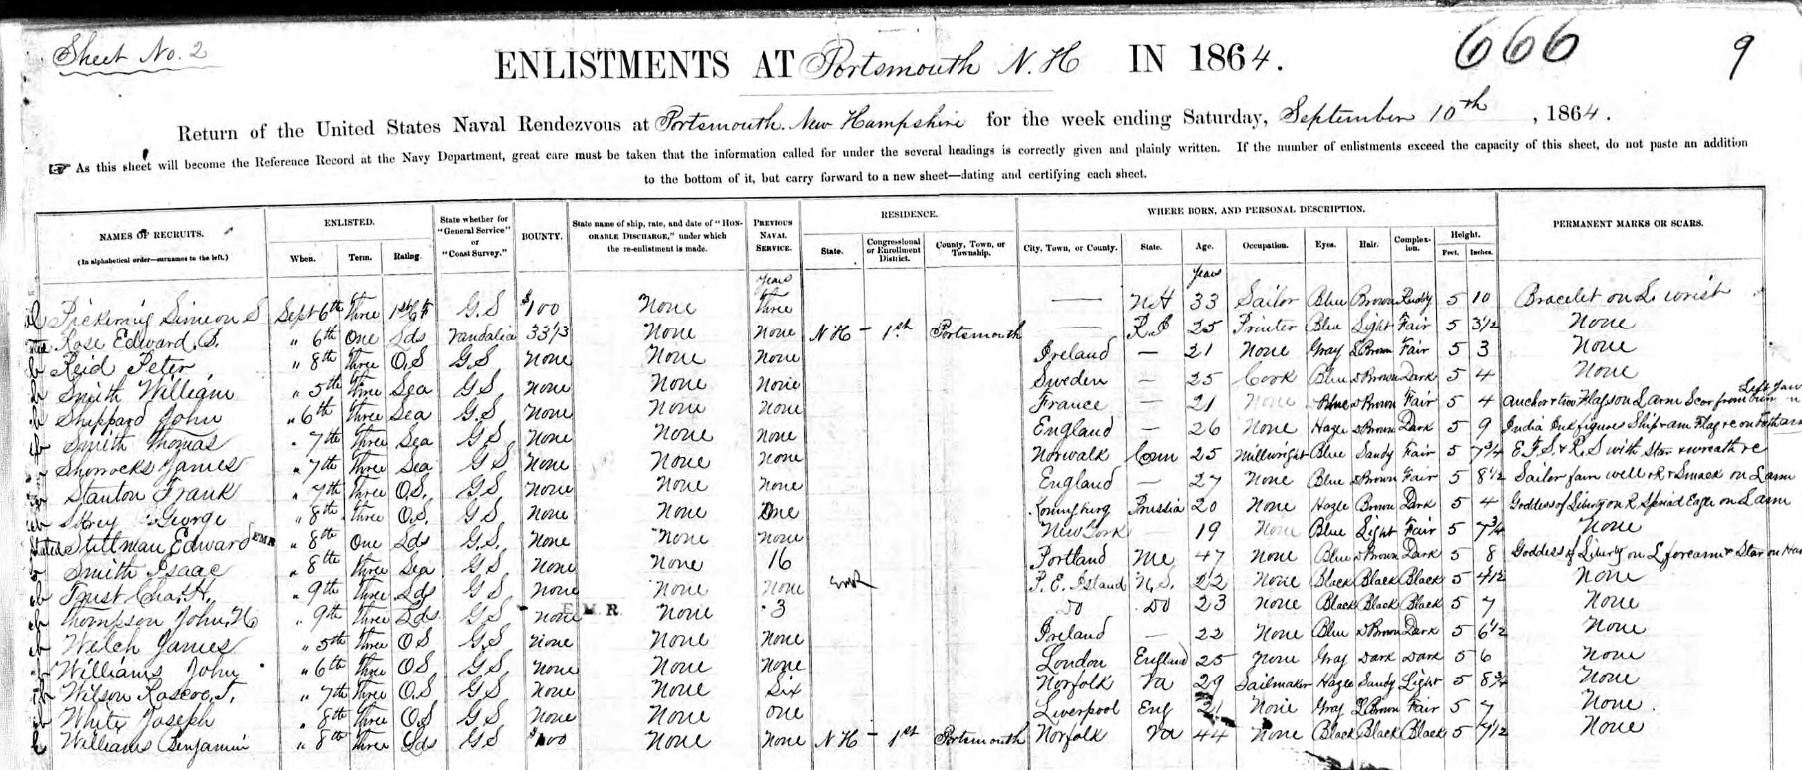 Sheet No. 2
666
9
ENLISTMENTS AT Portsmouth N. H IN 1864.
Return of the United States Naval Rendezvous at Portsmouth. New Hampshire for the week ending Saturday, September 10th, 1864.
☞ As this sheet will become the Reference Record at the Navy Department, great care must be taken that the information called for under the several headings is correctly given and plainly written. If the number of enlistments exceed the capacity of this sheet, do not paste an addition
to the bottom of it, but carry forward to a new sheet—dating and certifying each sheet.
NAMES OF RECRUITS. (In alphabetical order—surnames to the left.) ENLISTED. When. Term. Rating. State whether for "General Service" or "Coast Survey." BOUNTY. State name of ship, rate, and date of "HONORABLE DISCHARGE," under which the re-enlistment is made. PREVIOUS NAVAL SERVICE. RESIDENCE. State. Congressional or Enrollment District. County, Town, or Township. WHERE BORN, AND PERSONAL DESCRIPTION. City, Town, or County. State. Age. Occupation. Eyes. Hair. Complexion. Height. Feet. Inches. PERMANENT MARKS OR SCARS.
years years
Pickering Simeon S Sept 6th Three G.S $100 None Three — NH 33 Sailor Blue Brown Ruddy 5 10 Bracelet on L wrist
Rose Edward " 6th One Lds Vandalia 33 1/3 None None NH – 1st Portsmouth — R.I 25 Printer Blue Light Fair 5 3½ None
Reid Peter " 8th Three O.S GS None None None Ireland — 21 None Gray Brown Fair 5 3 None
Smith William " 5th Three Sea G S None None None Sweden — 25 Cook Blue Brown Dark 5 4 None
Shippard John " 6th Three Sea G.S None None None France — 21 None Blue Brown Fair 5 4 Anchor & two Flags on L arm Scar from Left
Smith Thomas " 7th Three Sea G S None None None England — 26 None Hazle Brown Dark 5 9 India Ink figures Ship
Shorrocks James " 7th Three Sea G S None None None Norwalk Conn 25 Millwright Blue Sandy Fair 5 7¾ E.F.S. & R S with Star & wreath
Stanton Frank " 7th Three O.S. G S None None None England — 27 None Blue Brown Fair 5 8½ Sailor farewell on L arm
George " 8th Three O.S. G S None None One Prussia 20 None Hazle Brown Dark 5 4 Goddess of Liberty on R Spread Eagle on L arm
Stillman Edward EMR " 8th One Lds G.S. None None None New York 19 None Blue Light Fair 5 7¾ None
Smith Isaac " 8th Three Sea G.S None None 16 Portland Me 47 None Blue Brown Dark 5 8 Goddess of Liberty on L forearm & Star on
Trust Chas. H. " 9th Three Lds G S None None None EMR P. E. Island N.S. 22 None Black Black Black 5 4½ None
Thompson John H " 9th Three Lds G S None E.M.R. None 3 Do Do 23 None Black Black Black 5 7 None
Welch James " 5th Three OS G.S None None None Ireland — 22 None Blue Brown Dark 5 6½ None
Williams John " 6th Three O.S G.S None None None London England 25 None Gray Dark Dark 5 6 None
Wilson Roscoe T. " 7th Three O.S G S None None Six Norfolk Va 29 Sailmaker Hazle Sandy Light 5 8¾ None
White Joseph " 8th Three O.S G S None None one Liverpool Eng 21 None Gray Brown Fair 5 7 None
Williams Benjamin " 8th Three Lds G S $100 None None NH – 1st Portsmouth Norfolk Va 44 None Black Black Black 5 7½ None